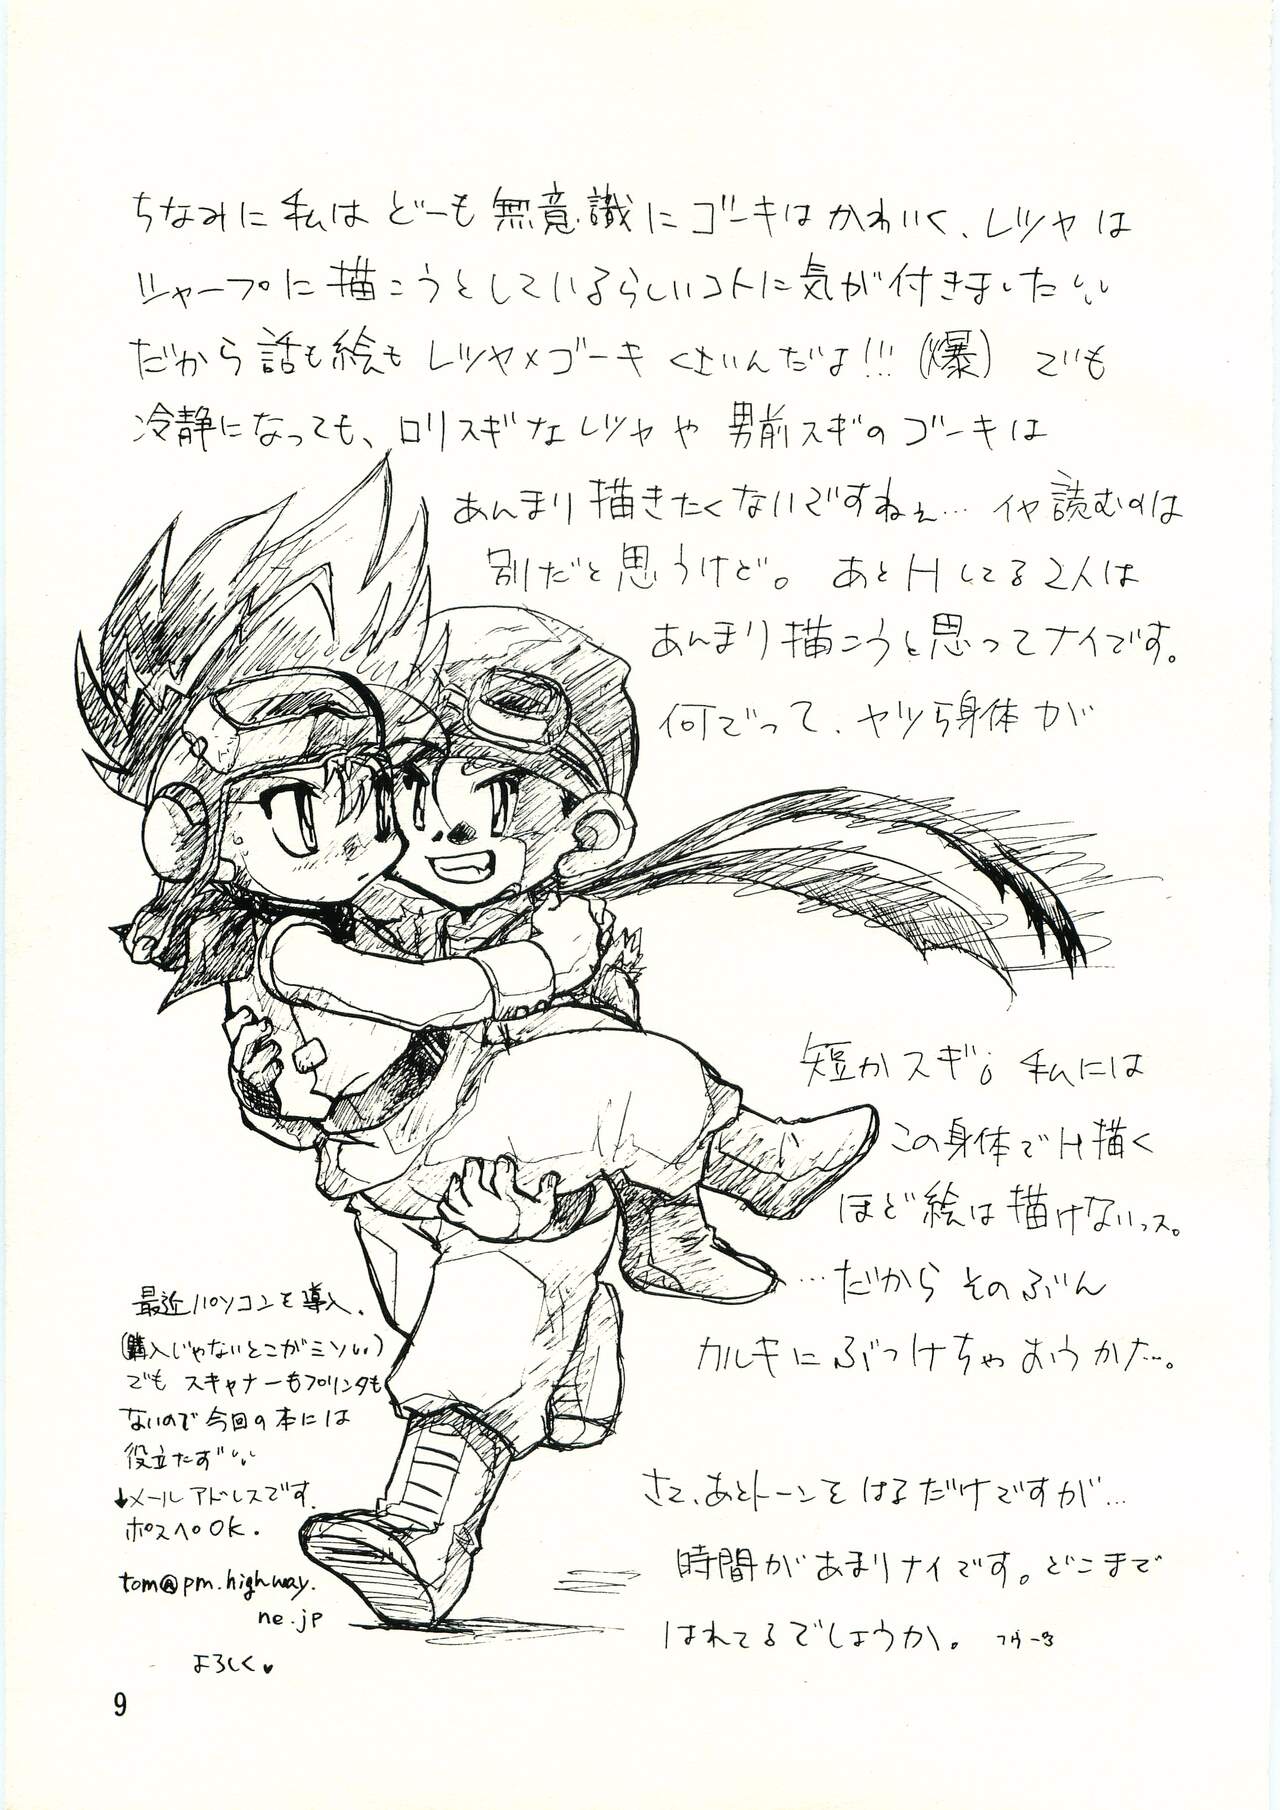 ちなみに私はどーも無意識にゴーキはかわいく、レツヤは
シャープに描こうとしているらしいコトに気が付きました
だから話も絵もレツヤ×ゴーキくさいんだよ!!!(爆) でも
冷静になっても、ロリスギなレツヤや男前スギのゴーキは
あんまり描きたくないですねぇ… イヤ読むのは
別だと思うけど。あとHしてる2人は
あんまり描こうと思ってナイです。
何でって、ヤツら身体が
短かスギ。私には
この身体でH描く
ほど絵は描けないっス。
…だからそのぶん
カルキにぶつけちゃおうかな…。
さて、あとトーンをはるだけですが…
時間があまりナイです。どこまで
はれてるでしょうか。
最近パソコンを導入。
(購入じゃないとこがミソ)
でもスキャナーもプリンタも
ないので今回の本には
役立たず
↓メールアドレスです。
ポスペOK。
tom@pm.highway.
ne.jp
よろしく♥
9